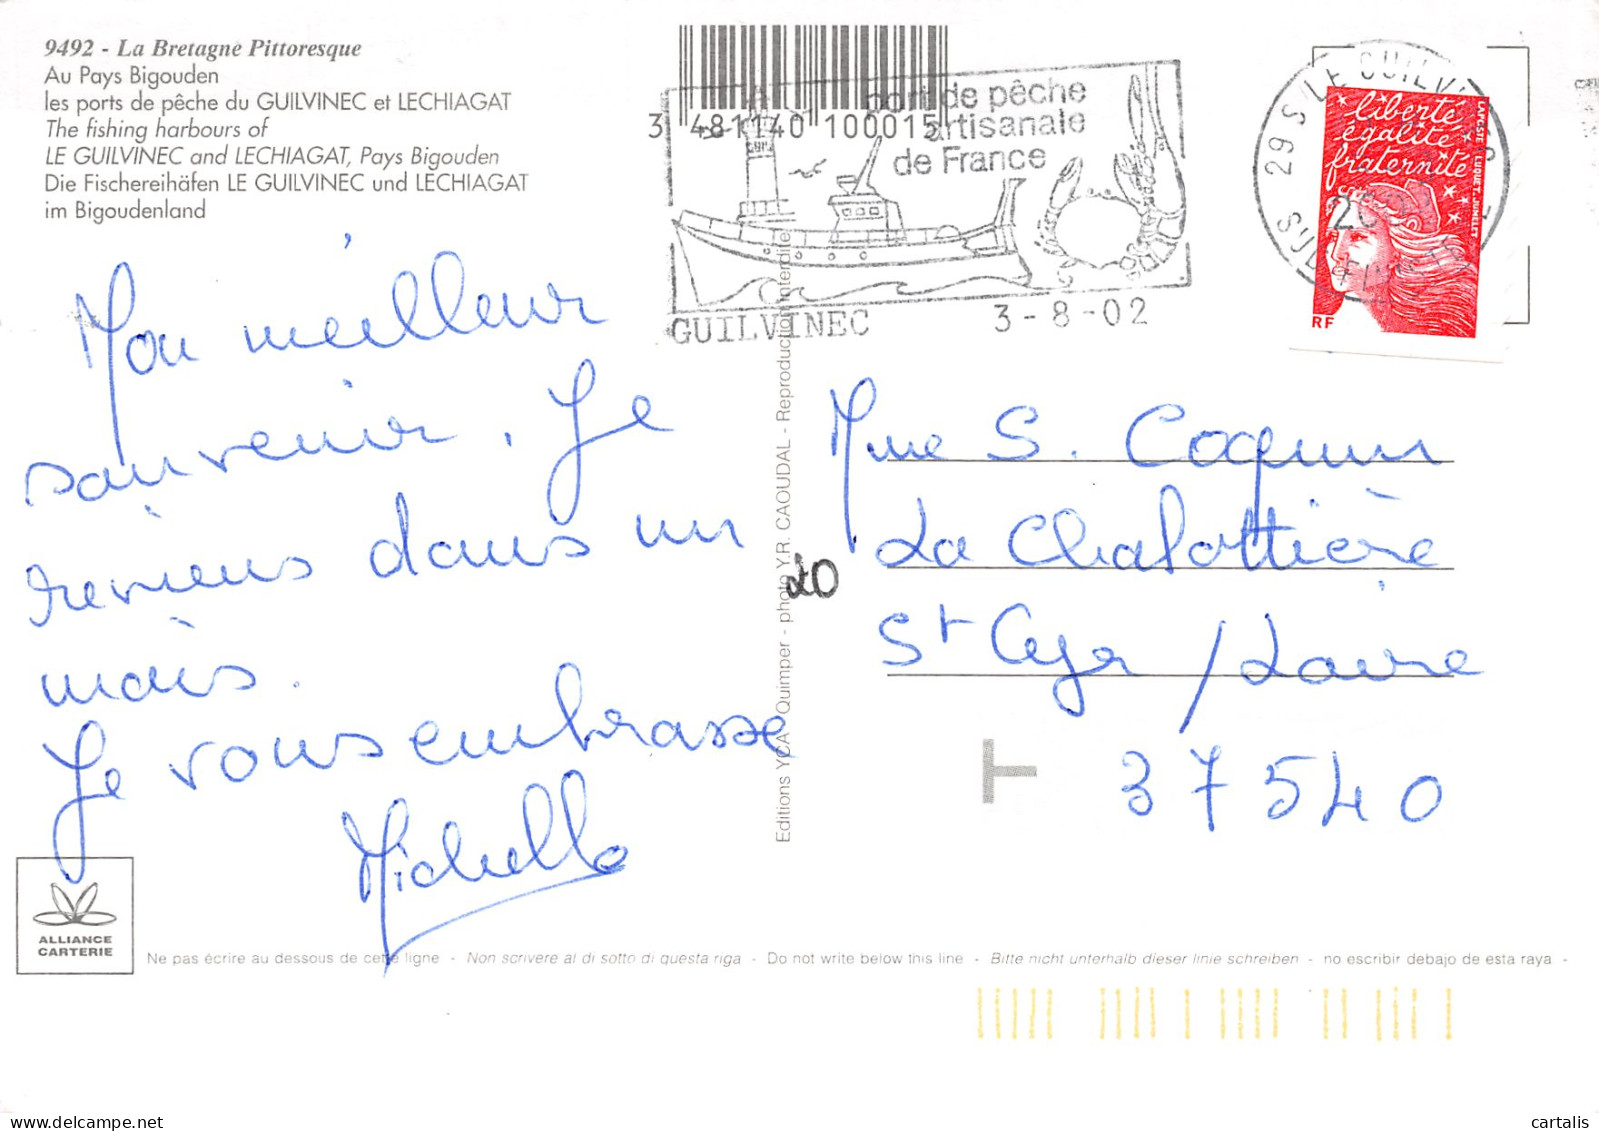 9492 - La Bretagne Pittoresque
Au Pays Bigouden
les ports de pêche du GUILVINEC et LECHIAGAT
The fishing harbours of
LE GUILVINEC and LECHIAGAT, Pays Bigouden
Die Fischereihäfen LE GUILVINEC und LECHIAGAT
im Bigoudenland
3 481140 100015
port de pêche
artisanale
de France
GUILVINEC
3-8-02
29 S LE GUILVINEC
liberté
égalité
fraternité
LA POSTE
LUQUET.JUMELET
RF
Mon meilleur
souvenir. Je
reviens dans un
mois.
Je vous embrasse
Michelle
Editions YCA - Quimper - photo Y.R. CAOUDAL - Reproduction interdite
20
Mme S. Coquin
La Chalottière
St Cyr / Loire
37540
ALLIANCE
CARTERIE
Ne pas écrire au dessous de cette ligne - Non scrivere al di sotto di questa riga - Do not write below this line - Bitte nicht unterhalb dieser linie schreiben - no escribir debajo de esta raya -
delcampe.net
cartalis